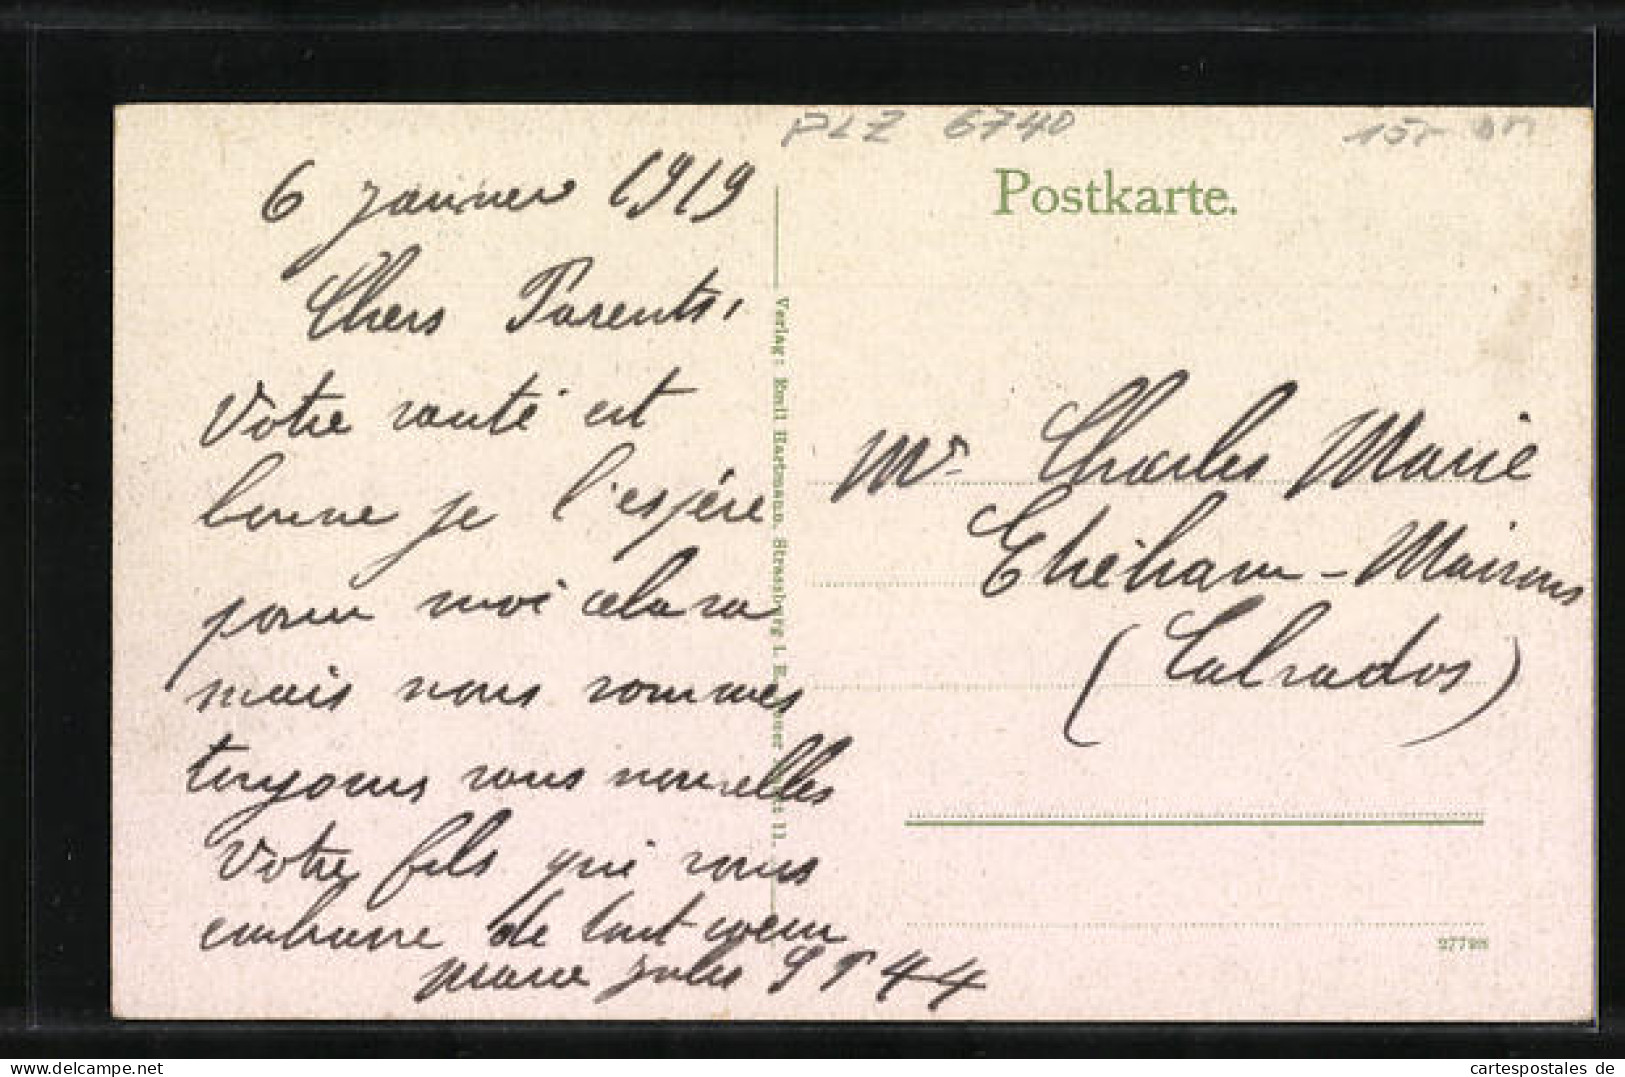 PLZ 6740
Postkarte.
6 janvier 1919
Chers Parents,
Votre santé est
bonne je l'espére
pour moi cela va
mais nous sommes
toujours sans nouvelles
Votre fils qui vous
embrasse de tout coeur
Marie Jules SP 44
Verlag: Emil Hartmann, Strassburg i. E.
Mr Charles Marie
Etréham-Maisons
(Calvados)
27728
delcampe.net
cartespostales de